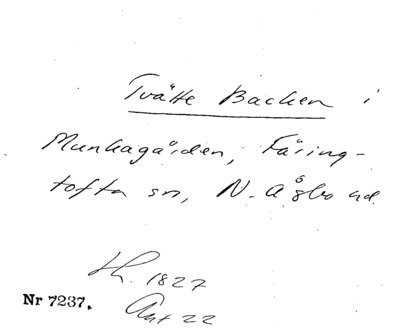 Tvätte Backen i
Munkagården, Färing-
tofta sn, N. Åsbo hd.
Lh. 1827
Akt 22
Nr 7237.